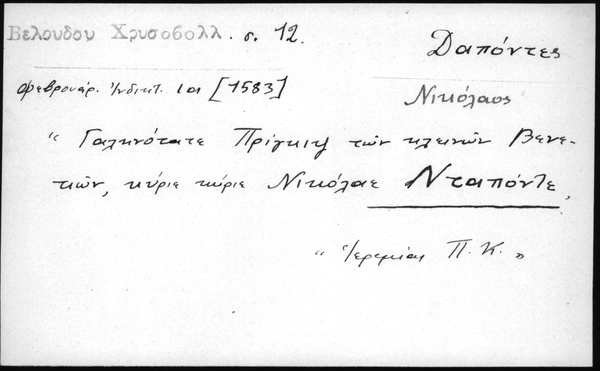 Βελουδου Χρυσοβολλ. σ. 12.
Δαπόντες
φεβρουαρ. Ἰνδικτ. ια [1583]
Νικόλαος
" Γαληνότατε Πρίγκιψ τῶν κλεινῶν Βενε-
τιῶν, κύριε κύριε Νικόλαε Νταπόντε,
" Ἱερεμίας Π. Κ. "